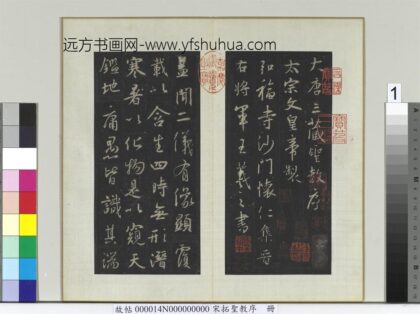 远方书画网-www.yfshuhua.com
大唐三藏聖教序
太宗文皇帝製
弘福寺沙門懷仁集晉
右將軍王羲之書
蓋聞二儀有像顯覆
載以含生四時無形潛
寒暑以化物是以窺天
鑑地庸愚皆識其端
1
故帖 000014N000000000 宋拓聖教序 冊